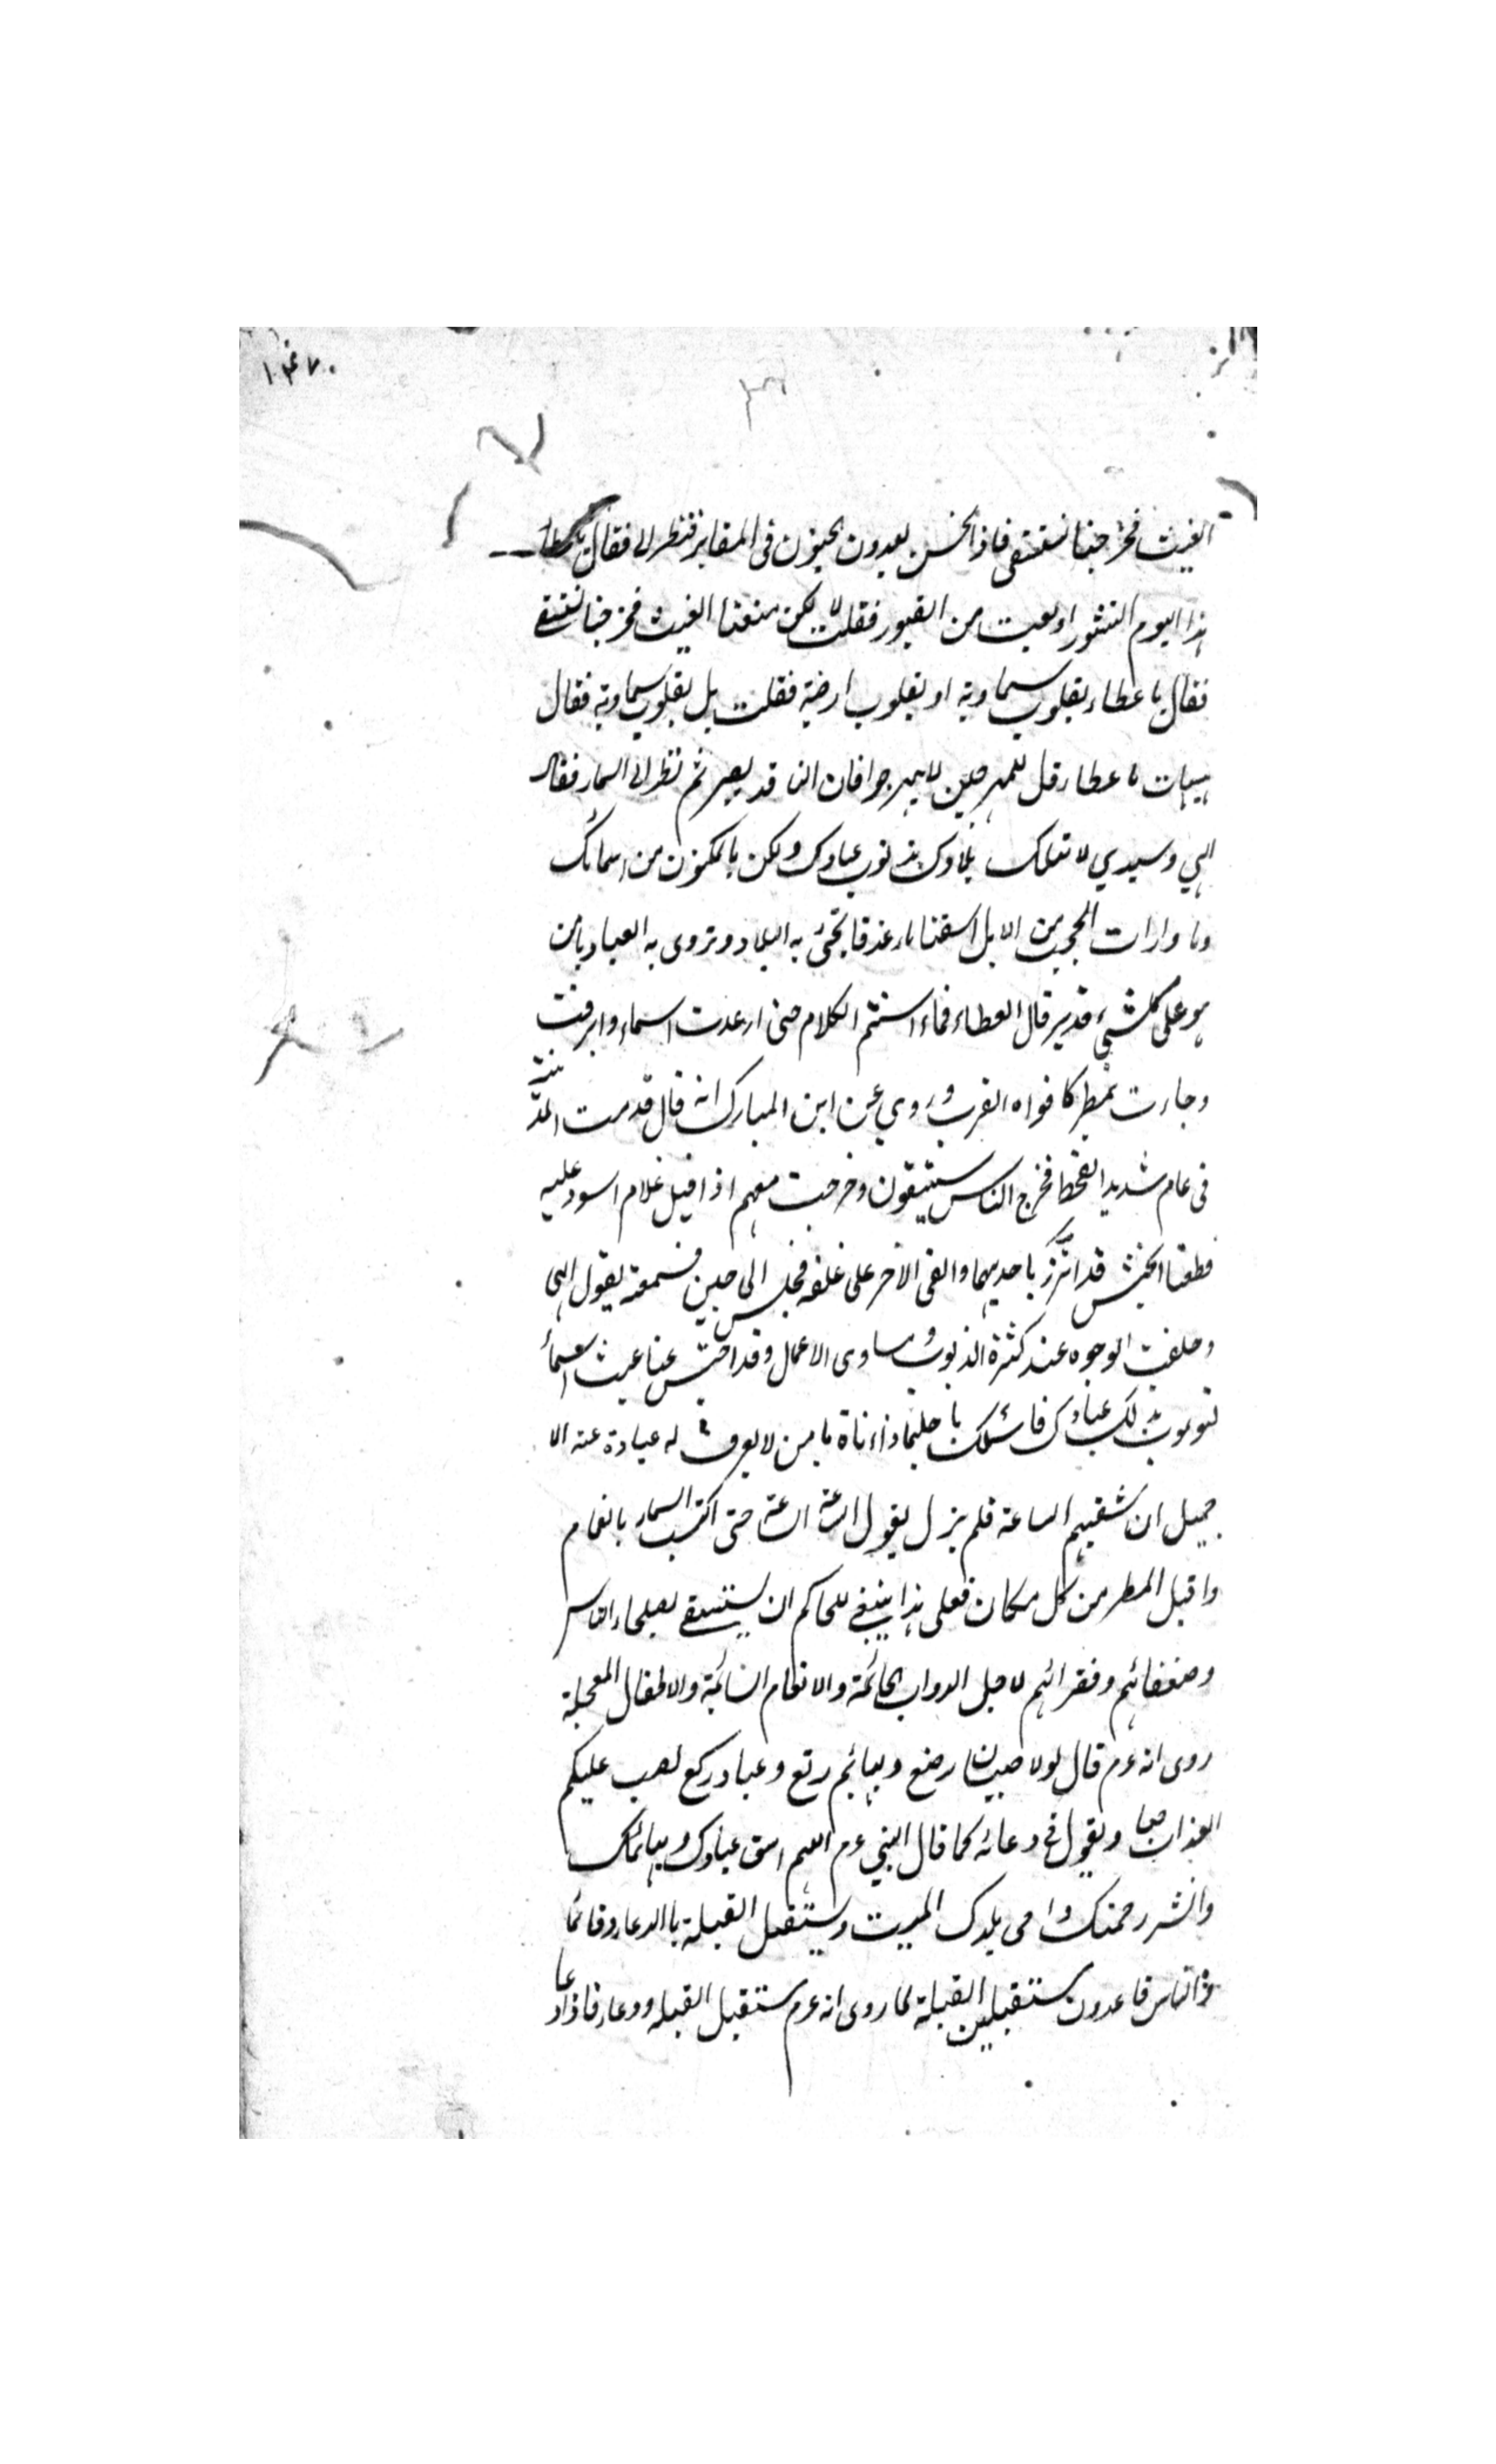 الغيث فخرجنا نستسقى فاذا نحن بسعدون المجنون فى المقابر فنظر الى فقال يا عطاء
هذا اليوم النشور او بعث من القبور فقلت لا لكن منعنا الغيث فخرجنا نستسقے
فقال يا عطاء بقلوب سماوية او بقلوب ارضية فقلت بل بقلوب سماوية فقال
هيهات يا عطاء قل للمبهرجين لا يبهرجوا فان الناقد بصير ثم نظر الى السماء فقال
الهي وسيدي لا تهلك بلادك بذنوب عبادك ولكن بالمكنون من اسمائك
وما وارات الحجب من الابل اسقنا ماء غدقا تحى به البلاد وتروى به العباد يا من
هو على كلشيء قدير قال العطاء فماء استتم الكلام حتى ارعدت اسماء وابرقت
وجاءت بمطر كافواه القرب وروي عن ابن المبارك انه قال قدمت المدينة
فى عام شديد القحط فخرج الناس يستسقون وخرجت معهم اذ اقبل غلام اسود عليه
قطعتا الخيش قد اتزر باحديهما والقى الآخر على عاتقه فجلس الى جنبي فسمعته يقول الهى
وخلقت الوجوه عند كثرة الذنوب ومساوى الاعمال وقد احتبس عنا غيث السماء
لتودب بذلك عبادك فاسئلك يا حليما ذا اناة يا من لا يعرف له عبادة عنه الا
جميل ان تسقيهم الساعة فلم يزل يقول الساعة الساعة حتى اكتسب السماء بالغمام
واقبل المطر من كل مكان فعلى هذا ينبغى للحاكم ان يستسقے بصلحاء الناس
وضعفائهم وفقرائهم لاجل الدواب الحائمة والانعام السائمة والاطفال المعجلة
روى انه عم قال لولا صبيان رضع وبهائم رتع وعباد ركع لصب عليكم
العذاب صبا ويقول فى دعائه كما قال النبي عم اللهم اسق عبادك وبهائمك
وانشر رحمتك واحى بلدك الميت ويستقبل القبلة بالدعاء قائما
والناس قاعدون مستقبلين القبلة لما روى انه عم ستقبل القبلة ودعاء فاذا دعا